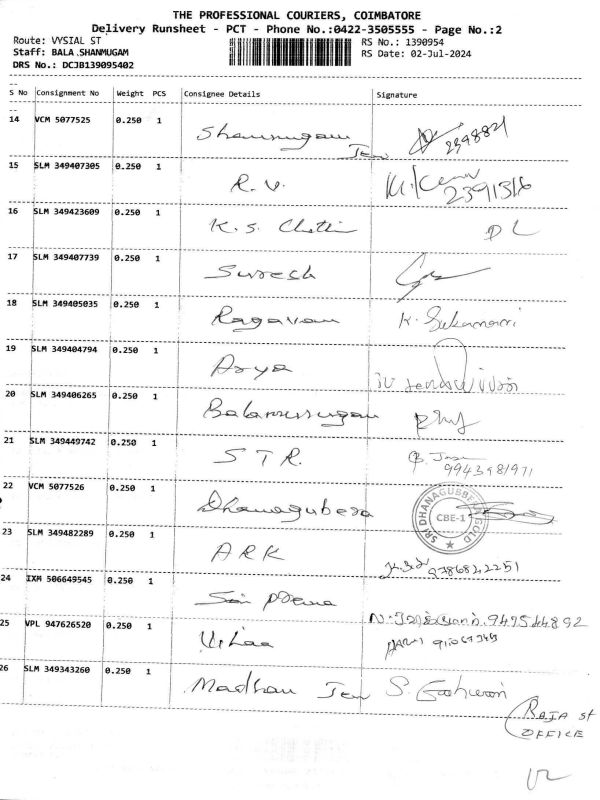 THE PROFESSIONAL COURIERS, COIMBATORE
Delivery Runsheet - PCT - Phone No.:0422-3505555 - Page No.:2
Route: VYSIAL ST
RS No.: 1390954
Staff: BALA.SHANMUGAM
RS Date: 02-Jul-2024
DRS No.: DCJB139095402
S No Consignment No Weight PCS Consignee Details Signature
14 VCM 5077525 0.250 1 Shanmugam
2398821
15 SLM 349407305 0.250 1 R. V.
2391316
16 SLM 349423609 0.250 1 K. S. DL
17 SLM 349407739 0.250 1 Suresh
18 SLM 349405035 0.250 1 Ragavan K.
19 SLM 349404794 0.250 1 Arya
20 SLM 349406265 0.250 1 Balamurugan
21 SLM 349449742 0.250 1 S T R.
9943981971
22 VCM 5077526 0.250 1 Dhanagubera
SRI DHANAGUBBERA GOLD
CBE-1
23 SLM 349482289 0.250 1 ARK
9786842251
24 IXM 506649545 0.250 1 Sai
25 VPL 947626520 0.250 1
26 SLM 349343260 0.250 1 Madhan Jew S.
RAJA St
OFFICE